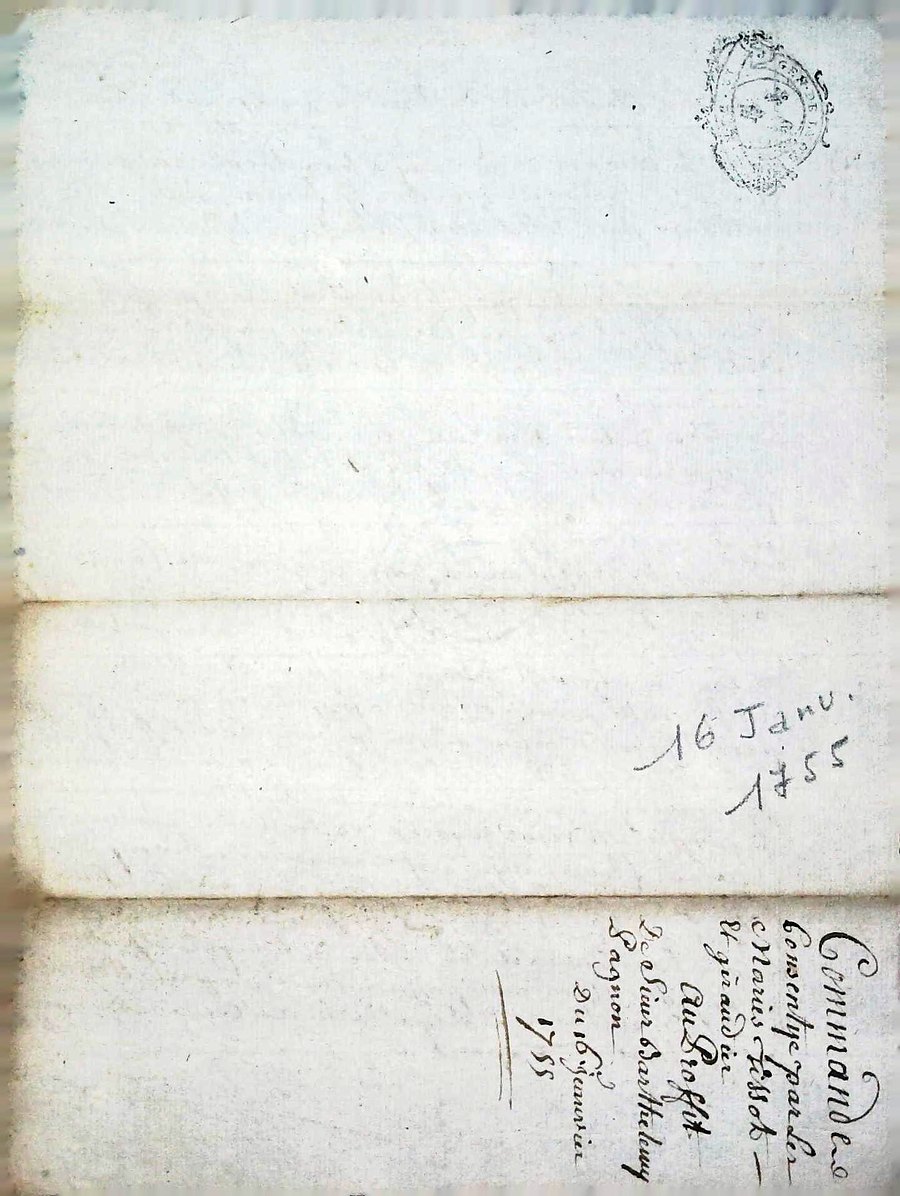 GEN DE L
16 Janv.
1755
Commande
Consentye par Les
Maris Tissot
Et giraudier
Au Proffit
De Sieur Barthelemy
Pagnon
Du 16e Janvier
1755